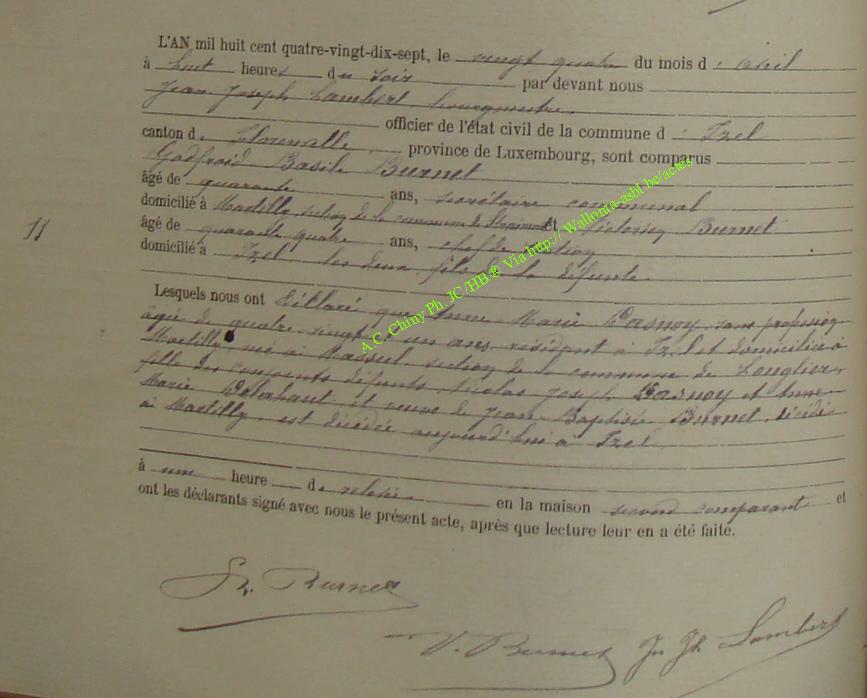 L'AN mil huit cent quatre-vingt-dix-sept, le vingt quatre du mois d'Avril
à huit heures du soir par devant nous
Jean Joseph Lambert, bourgmestre,
officier de l'état civil de la commune d'Izel
canton de Florenville, province de Luxembourg, sont comparus
Godfroid Basile Burnet
âgé de quarante ans, secrétaire communal
domicilié à Martilly, section de la commune de Straimont et Victorien Burnet
11
âgé de quarante quatre ans, chef de station
domicilié à Izel les deux fils de la défunte
Lesquels nous ont déclaré que Anne Marie Dasnoy, sans profession
âgée de quatre vingt un ans, résidant à Izel et domiciliée à
Martilly, née à Massul, section de la commune de Longlier,
fille des conjoints défunts Nicolas Joseph Dasnoy et Anne
Marie Delahaut, et veuve de Jean Baptiste Burnet, décédé
à Martilly, est décédée aujourd'hui à Izel
à une heure de relevée en la maison second comparant et
ont les déclarants signé avec nous le présent acte, après que lecture leur en a été faite.
Burnet
V. Burnet Jn Jh Lambert
A.C. Chiny Ph. JC/HB ® Via http://Wallonia-asbl.be/actes